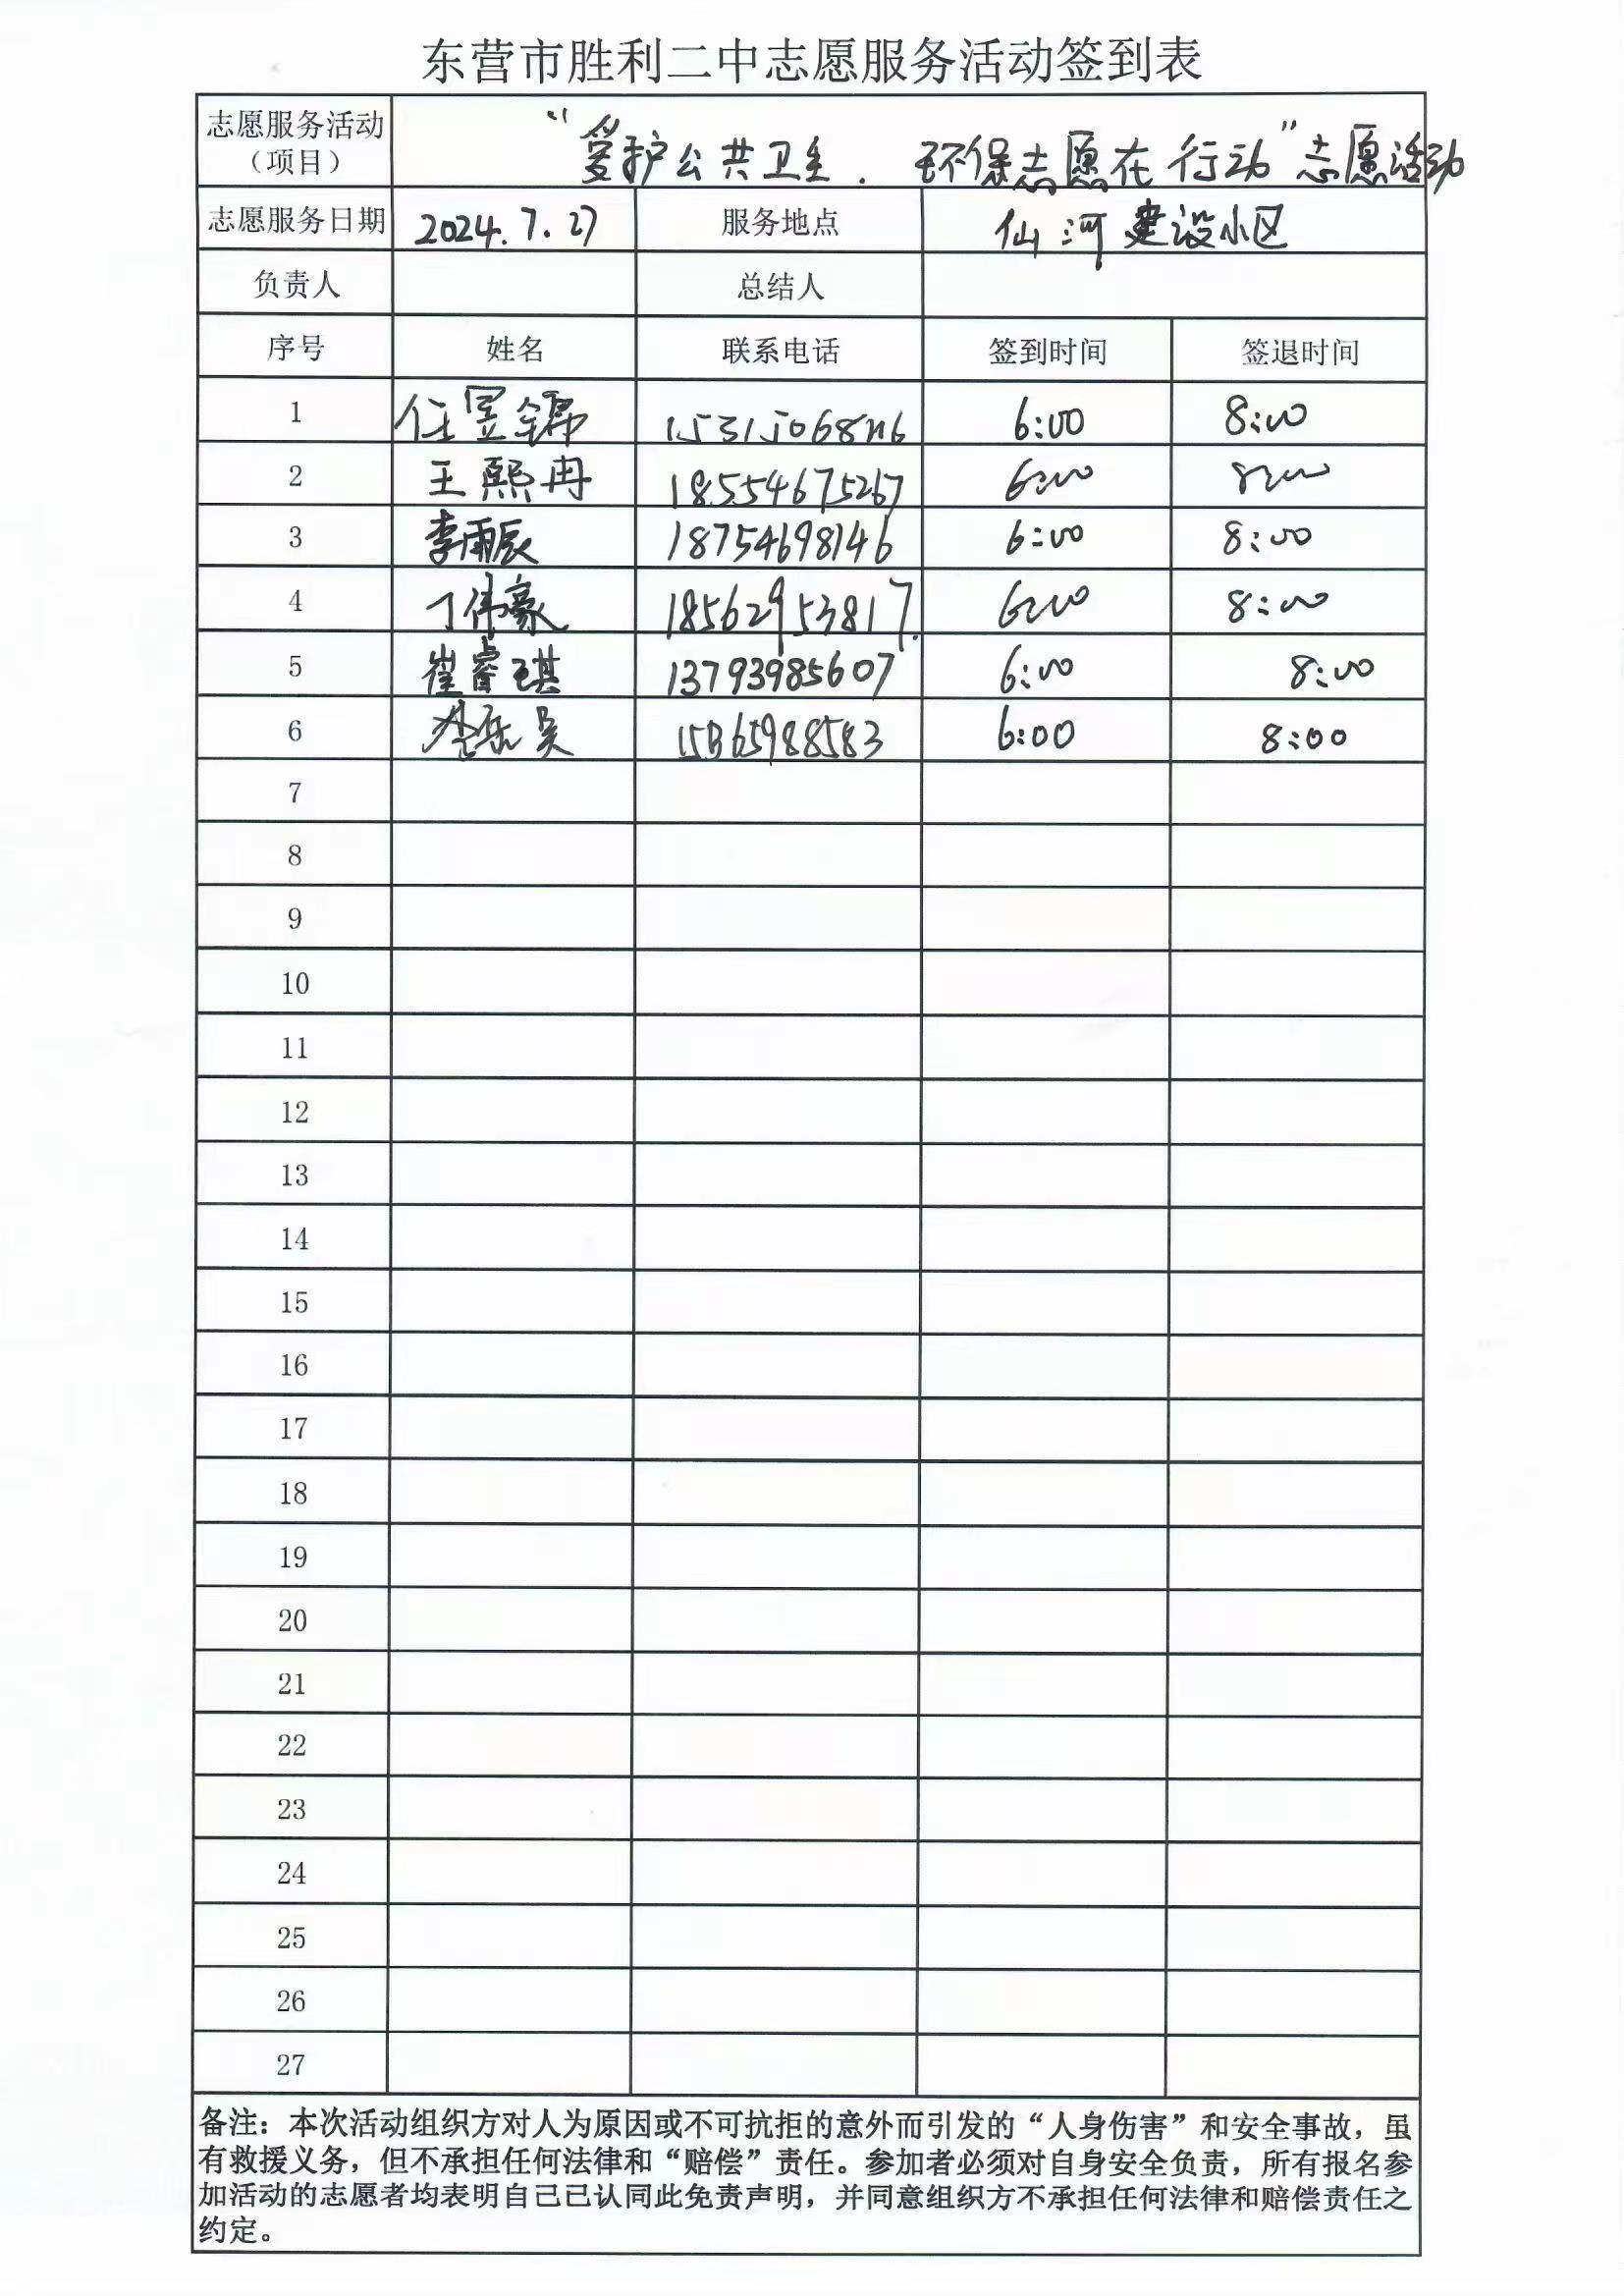 东营市胜利二中志愿服务活动签到表
志愿服务活动（项目） “爱护公共卫生．环保志愿在行动”志愿活动
志愿服务日期 2024.7.27 服务地点 仙河建设小区
负责人 总结人
序号 姓名 联系电话 签到时间 签退时间
1 任昱锦 6:00 8:00
2 王熙冉 18554675267 6:00 8:00
3 李雨辰 18754698146 6:00 8:00
4 丁伟豪 18562953817 6:00 8:00
5 崔睿琪 13793985607 6:00 8:00
6 15365988583 6:00 8:00
7
8
9
10
11
12
13
14
15
16
17
18
19
20
21
22
23
24
25
26
27
备注：本次活动组织方对人为原因或不可抗拒的意外而引发的“人身伤害”和安全事故，虽
有救援义务，但不承担任何法律和“赔偿”责任。参加者必须对自身安全负责，所有报名参
加活动的志愿者均表明自己已认同此免责声明，并同意组织方不承担任何法律和赔偿责任之
约定。